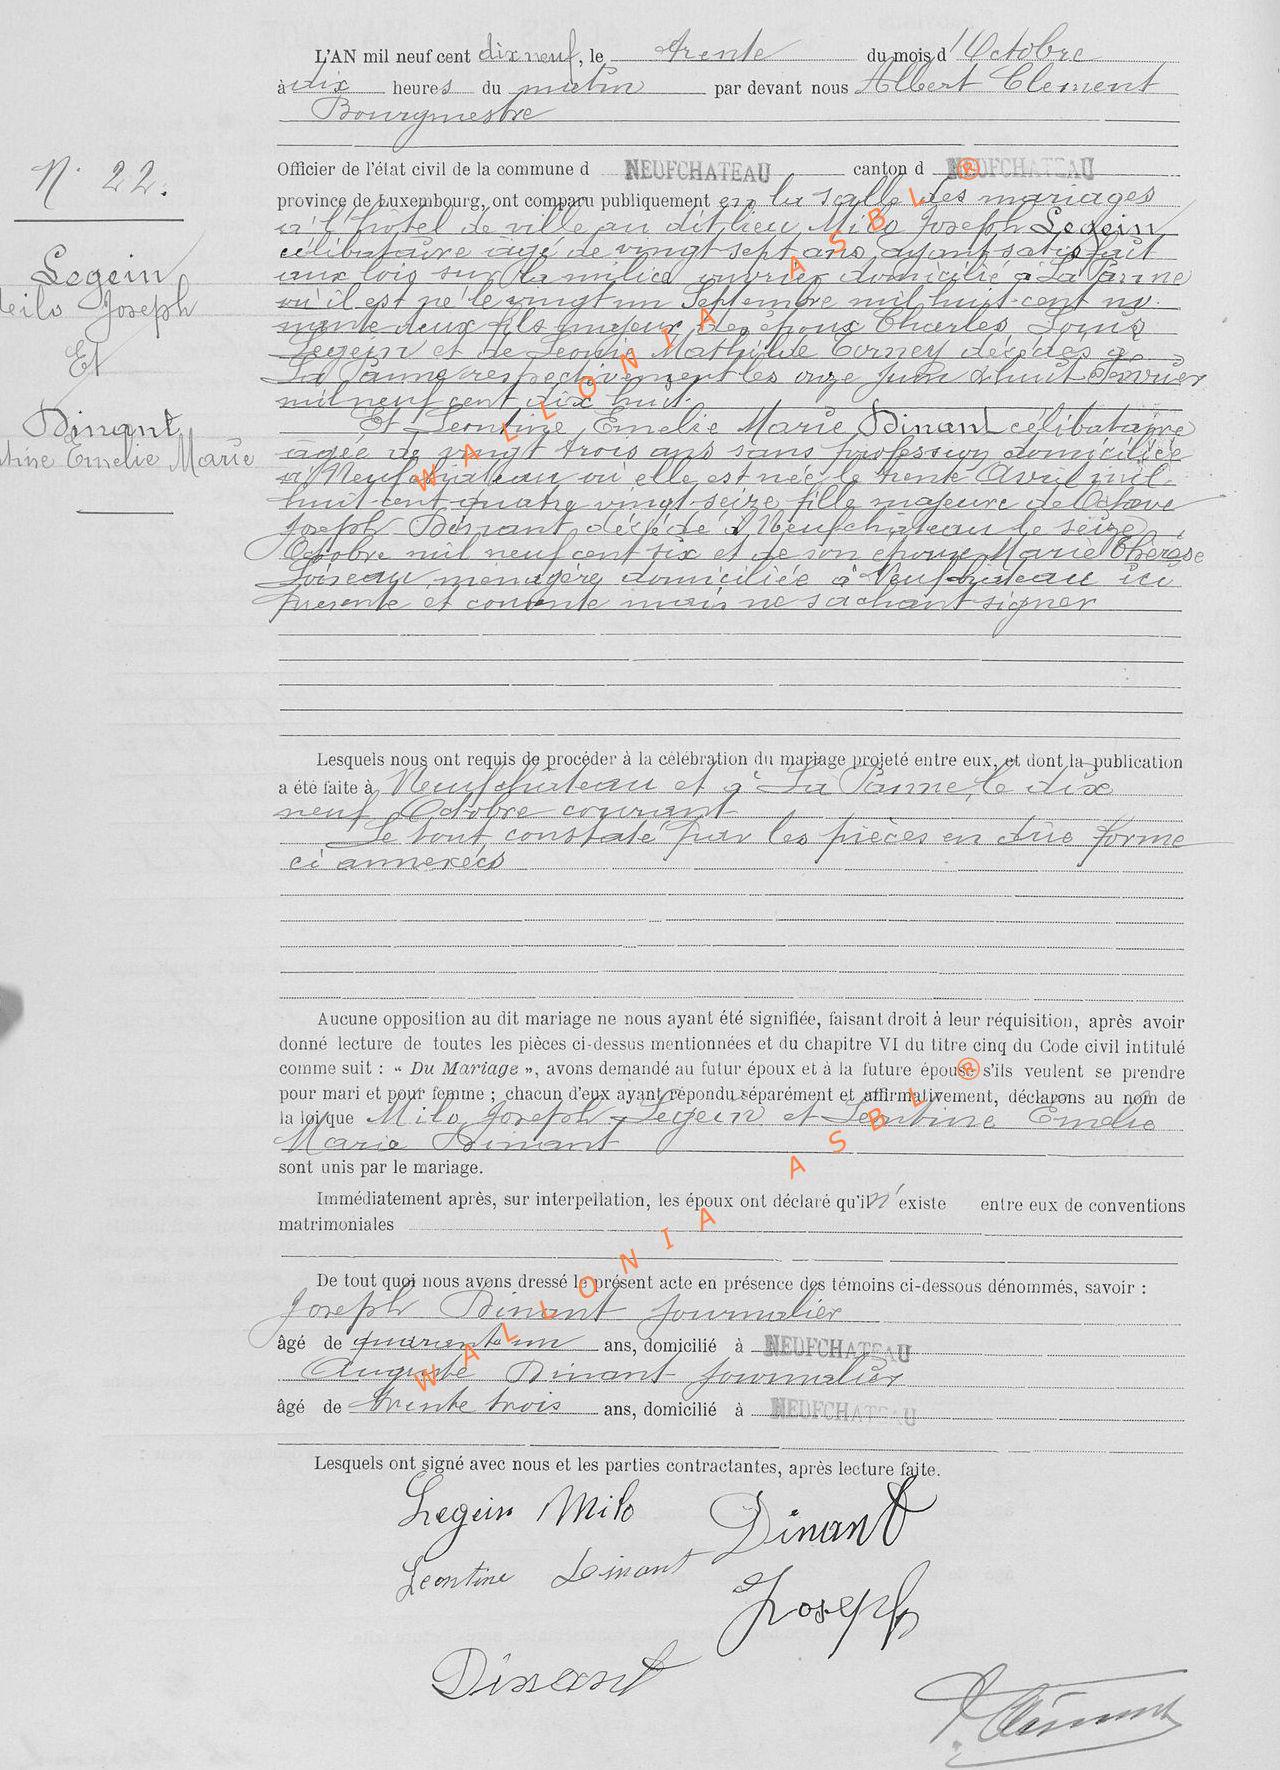 L'AN mil neuf cent dix neuf, le trente du mois d'Octobre
à dix heures du matin par devant nous Albert Clement
Bourgmestre
Officier de l'état civil de la commune d NEUFCHATEAU canton d NEUFCHATEAU
N. 22.
province de Luxembourg, ont comparu publiquement en la salle des mariages
à l'hotel de ville au dit lieu Milo Joseph Legein
célibataire âgé de vingt sept ans ayant satisfait
aux lois sur la milice ouvrier domicilié à La Panne
où il est né le vingt un Septembre mil huit cent no
nante deux fils majeur des époux Charles Louis
Legein et de Leonie Mathilde Torney décédés à
La Panne respectivement les onze Juin & huit Fevrier
mil neuf cent dix huit.
Legein
Joseph
Et
Dinant
Emelie Marie
Et Leontine Emelie Marie Dinant célibataire
agée de vingt trois ans sans profession domiciliée
à Neufchateau où elle est née le trente Avril mil
huit cent quatre vingt seize fille majeure de Octave
Joseph Dinant décédé à Neufchâteau le seize
Octobre mil neuf cent six et de son epouse Marie Thérèse
Loiseau ménagère domiciliée à Neufchateau ici
presente et consente mais ne sachant signer
Lesquels nous ont requis de procéder à la célébration du mariage projeté entre eux, et dont la publication
a été faite à Neufchâteau et à La Panne, le dix
neuf Octobre courant
Le tout constaté par les pièces en due forme
ci annexées
Aucune opposition au dit mariage ne nous ayant été signifiée, faisant droit à leur réquisition, après avoir
donné lecture de toutes les pièces ci-dessus mentionnées et du chapitre VI du titre cinq du Code civil intitulé
comme suit : « Du Mariage », avons demandé au futur époux et à la future épouse s'ils veulent se prendre
pour mari et pour femme ; chacun d'eux ayant répondu séparément et affirmativement, déclarons au nom de
la loi que Milo Joseph Legein et Leontine Emelie
Marie Dinant
sont unis par le mariage.
Immédiatement après, sur interpellation, les époux ont déclaré qu'il n'existe entre eux de conventions
matrimoniales
De tout quoi nous avons dressé le présent acte en présence des témoins ci-dessous dénommés, savoir :
Joseph Dinant journalier
âgé de quarante un ans, domicilié à NEUFCHATEAU
Auguste Dinant journalier
âgé de trente trois ans, domicilié à NEUFCHATEAU
Lesquels ont signé avec nous et les parties contractantes, après lecture faite.
Legein Milo Dinant
Leontine Dinant Joseph
Dinant
Clément
WALLONIA ASBL ®
WALLONIA ASBL ®